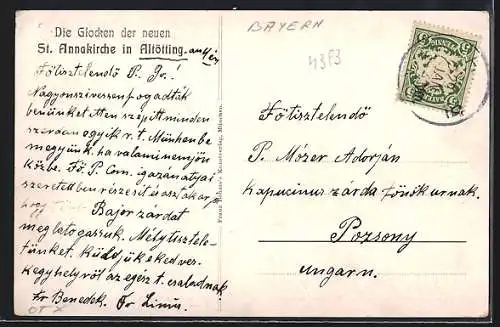 Die Glocken der neuen
St. Annakirche in Altötting.
Főtisztelendő P. Gv.!
Nagyon szivessen fogadták
benünket itten szép itt minden
szerdán
r. t. Münhenbe
megyünk ha valami nem jön
közbe. Fő. P. Com. igazán atyai
szeretetben részesit és azt akarja
hogy
Bajor zárdát
meglátogassuk. Mély tisztele-
tünket. Küldjük e kedves
kegyhelyről az egész t. családnak
fr Benedek. Fr Linus.
BAYERN
43F3
BAYERN
5
Főtisztelendő
P. Mózer Adorján
kapucinus zárda főnök urnak.
Pozsony
Ungarn.